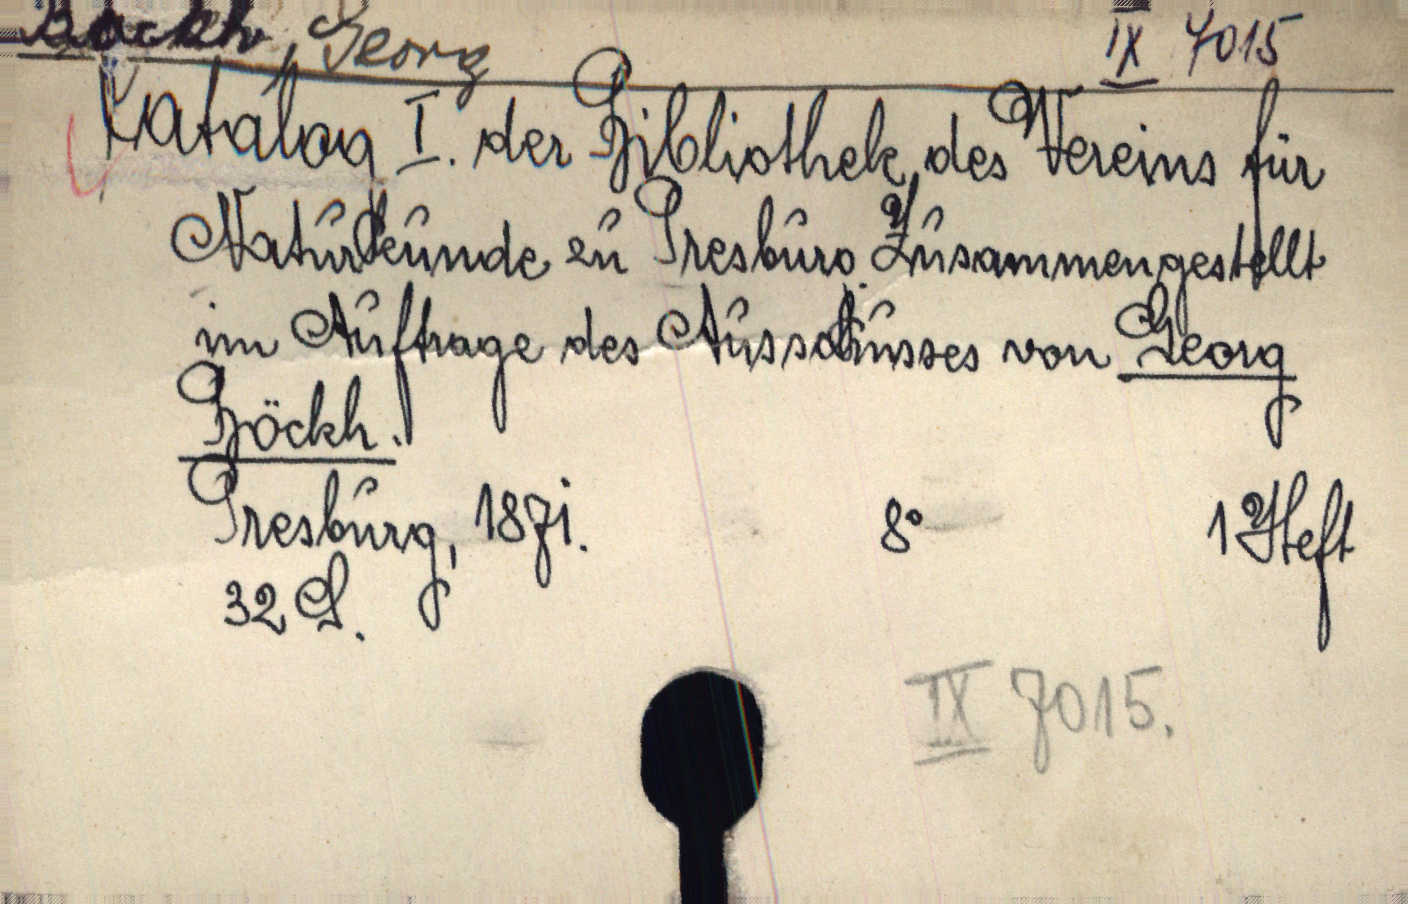 Böckh, Georg IX 7015
Katalog I. der Bibliothek des Vereins für
Naturkunde zu Presburg. Zusammengestellt
im Auftrage des Ausschusses von Georg
Böckh.
Presburg, 1871. 8° 1 Heft
32 S.
IX 7015.